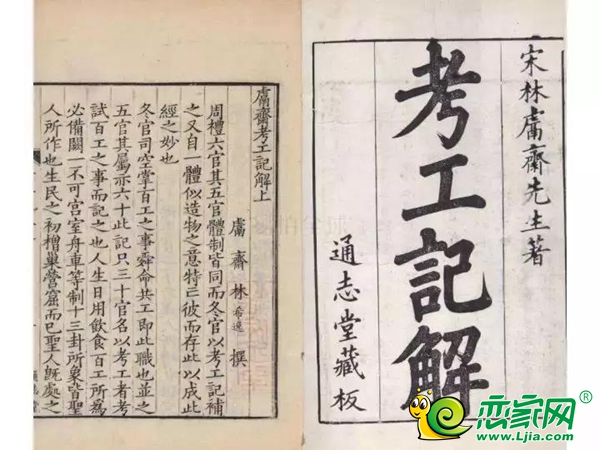 宋林鬳齋先生著
考工記解
通志堂藏板
鬳齋考工記解上
鬳齋林希逸撰
周禮六官其五官體制皆同而冬官以考工記補
之又自一體似造物之意特亡彼而存此以成此
經之妙也
冬官司空掌百工之事舜命共工即此職也並之
五官其屬亦六十此記只三十官名以考工者考
試百工之事而記之也人生日用飲食百工所爲
必備闕一不可宮室舟車等制十三卦所象皆聖
人所作也生民之初橧巢營窟而已聖人既處之
恋家网®
www.Ljia.com